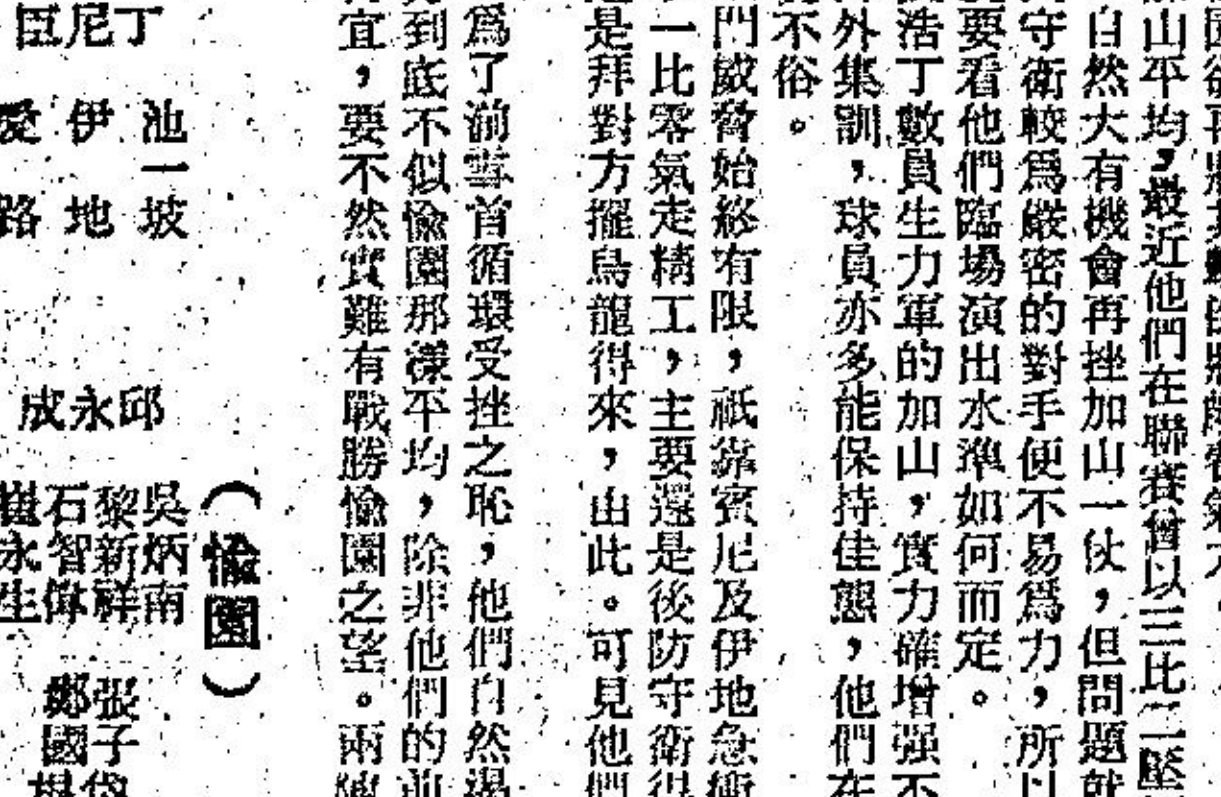 山平均，最近他們在聯賽曾以三比二壓
自然大有機會再挫加山一仗，但問題就
守衛較爲嚴密的對手便不易爲力，所以
要看他們臨場演出水準如何而定。
浩丁數員生力軍的加山，實力確增强不
外集訓，球員亦多能保持佳態，他們在
不俗。
門威脅始終有限，祇靠賓尼及伊地急衝
一比零氣走精工，主要還是後防守衛得
是拜對方擺烏龍得來，由此。可見他們
爲了湔雪首循環受挫之恥，他們自然渴
到底不似愉園那樣平均，除非他們的前
宜，要不然實難有戰勝愉園之望。兩隊
（愉園）
吳炳南
黎新祥
石智偉
永生
張子岱
鄭國根
邱永成
池一坡
伊地
愛路
丁尼臣